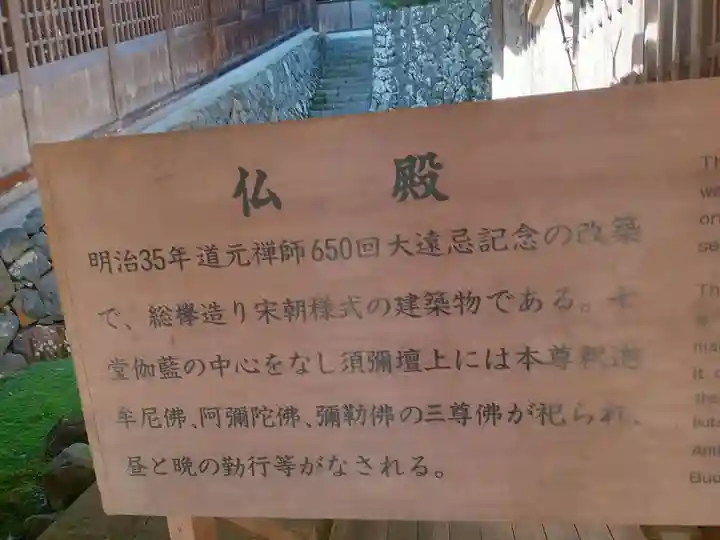 仏殿
明治35年道元禅師650回大遠忌記念の改築
で、総欅造り宋朝様式の建築物である。七
堂伽藍の中心をなし須彌壇上には本尊釈迦
牟尼佛、阿彌陀佛、彌勒佛の三尊佛が祀られ、
昼と晩の勤行等がなされる。
Th
wa
or
se
Th
nis
it c
the
buts
Ami
Bud